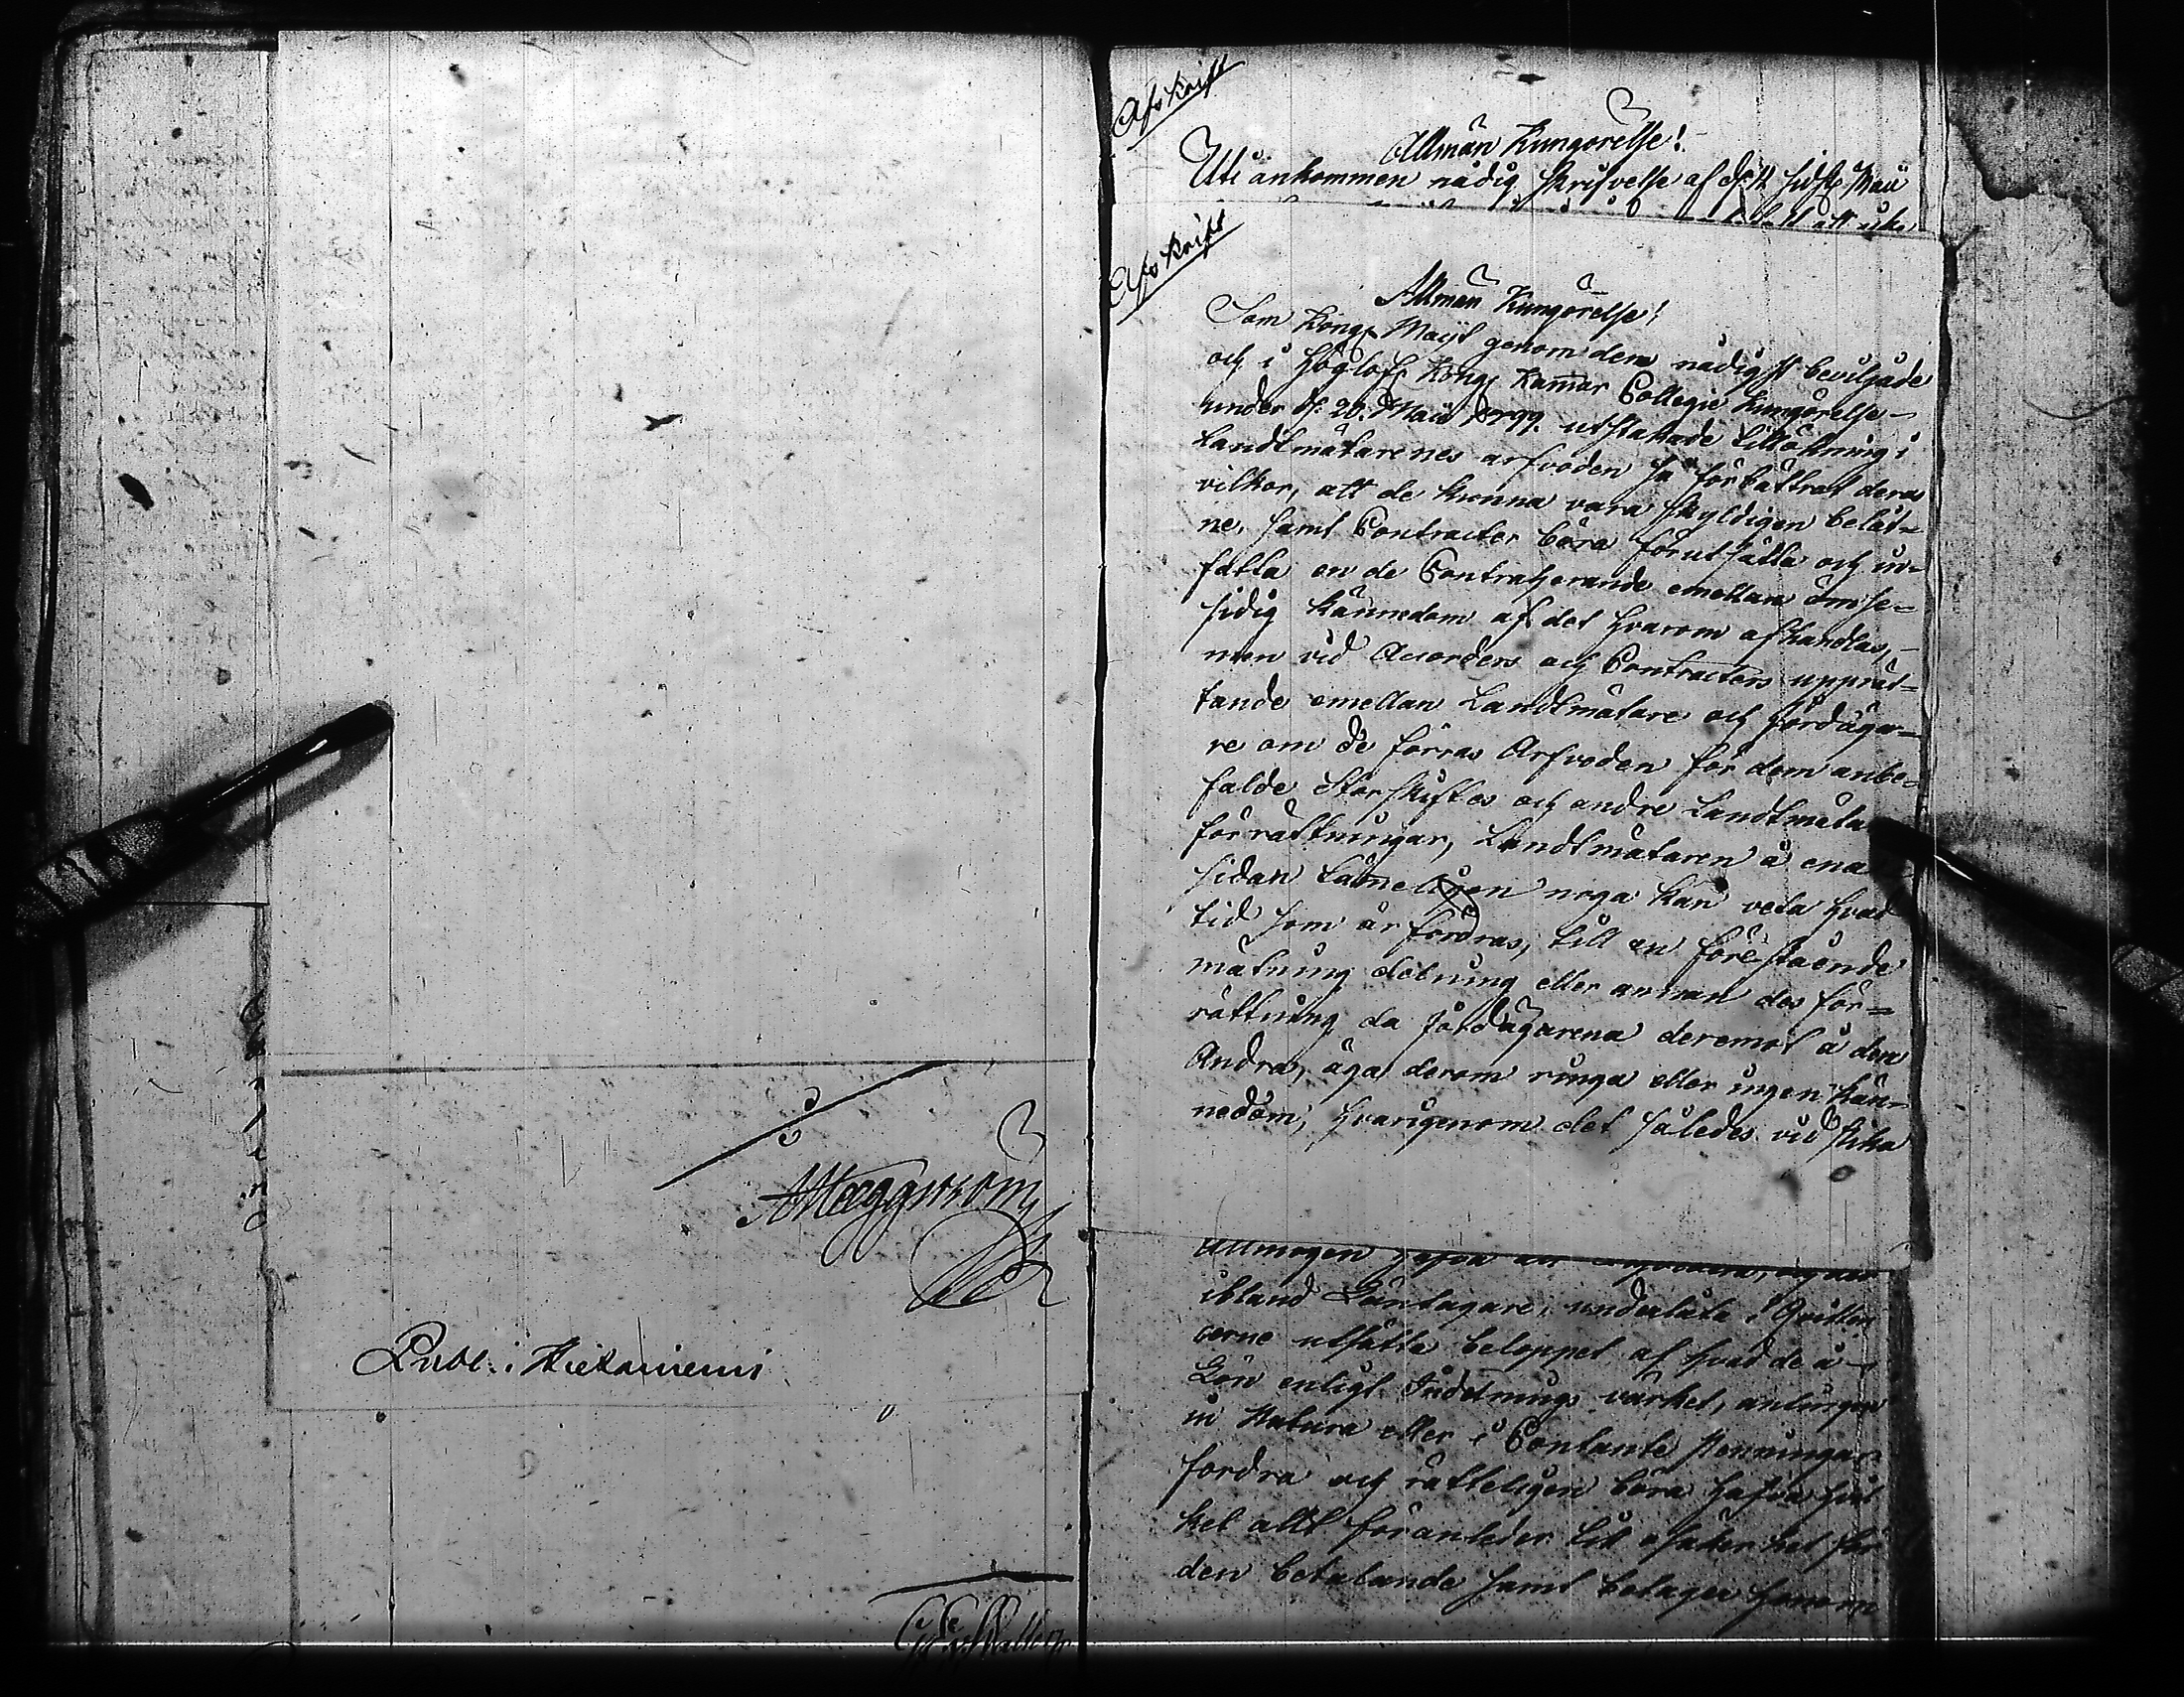 AHæggström
Publ: i Hietaniemi
Afskrift
Allmän Kungörelse!
Uti ankommen nådig skrifvelse af d. sidstl. Maii
Afskrift
Allmän Kungörelse!
Som Kongl Maijt genom dem nådigst beviljade
och i Höglofl Kongl Kammar Collegii Kungörelse
under d. 20. Maii utstakade tillökning i
Landtmätarenes arfvoden så förbättrat deras
vilkor, att de kunna vara skyldigen belåt-
ne, samt Contracter böra förutsätta och in-
fatta en de Contraherande emellan ömse-
sidig kännedom af det hvarom afhandlas,
men vid Accorders och Contracters upprät-
tande emellan Landtmätare och Jordäga-
re om de förras Arfvoden för dem anbe-
falde Storskiftes och andre Landtmäta
förrättningar, Landtmätaren å ena
sidan tämeligen noga kan veta hvad
tid som är fordras, till en förestående
mätning delning eller annan des för-
rättning da Jordägarena deremot å den
Andra, äga derom ringa eller ingen kän-
nedom, hvarigenom det således vid slika
Allmogen
ibland Löntagare, underlåta i Qvitten
cerne utsätta beloppet af hvad de å
Lön enligt Indelnings värket, antingen
in Natura eller i Contante Penningar
fordra och rätteligen böra hafva hvil
ket allt föranleder till osäkerhet för
den betalande samt betager honom